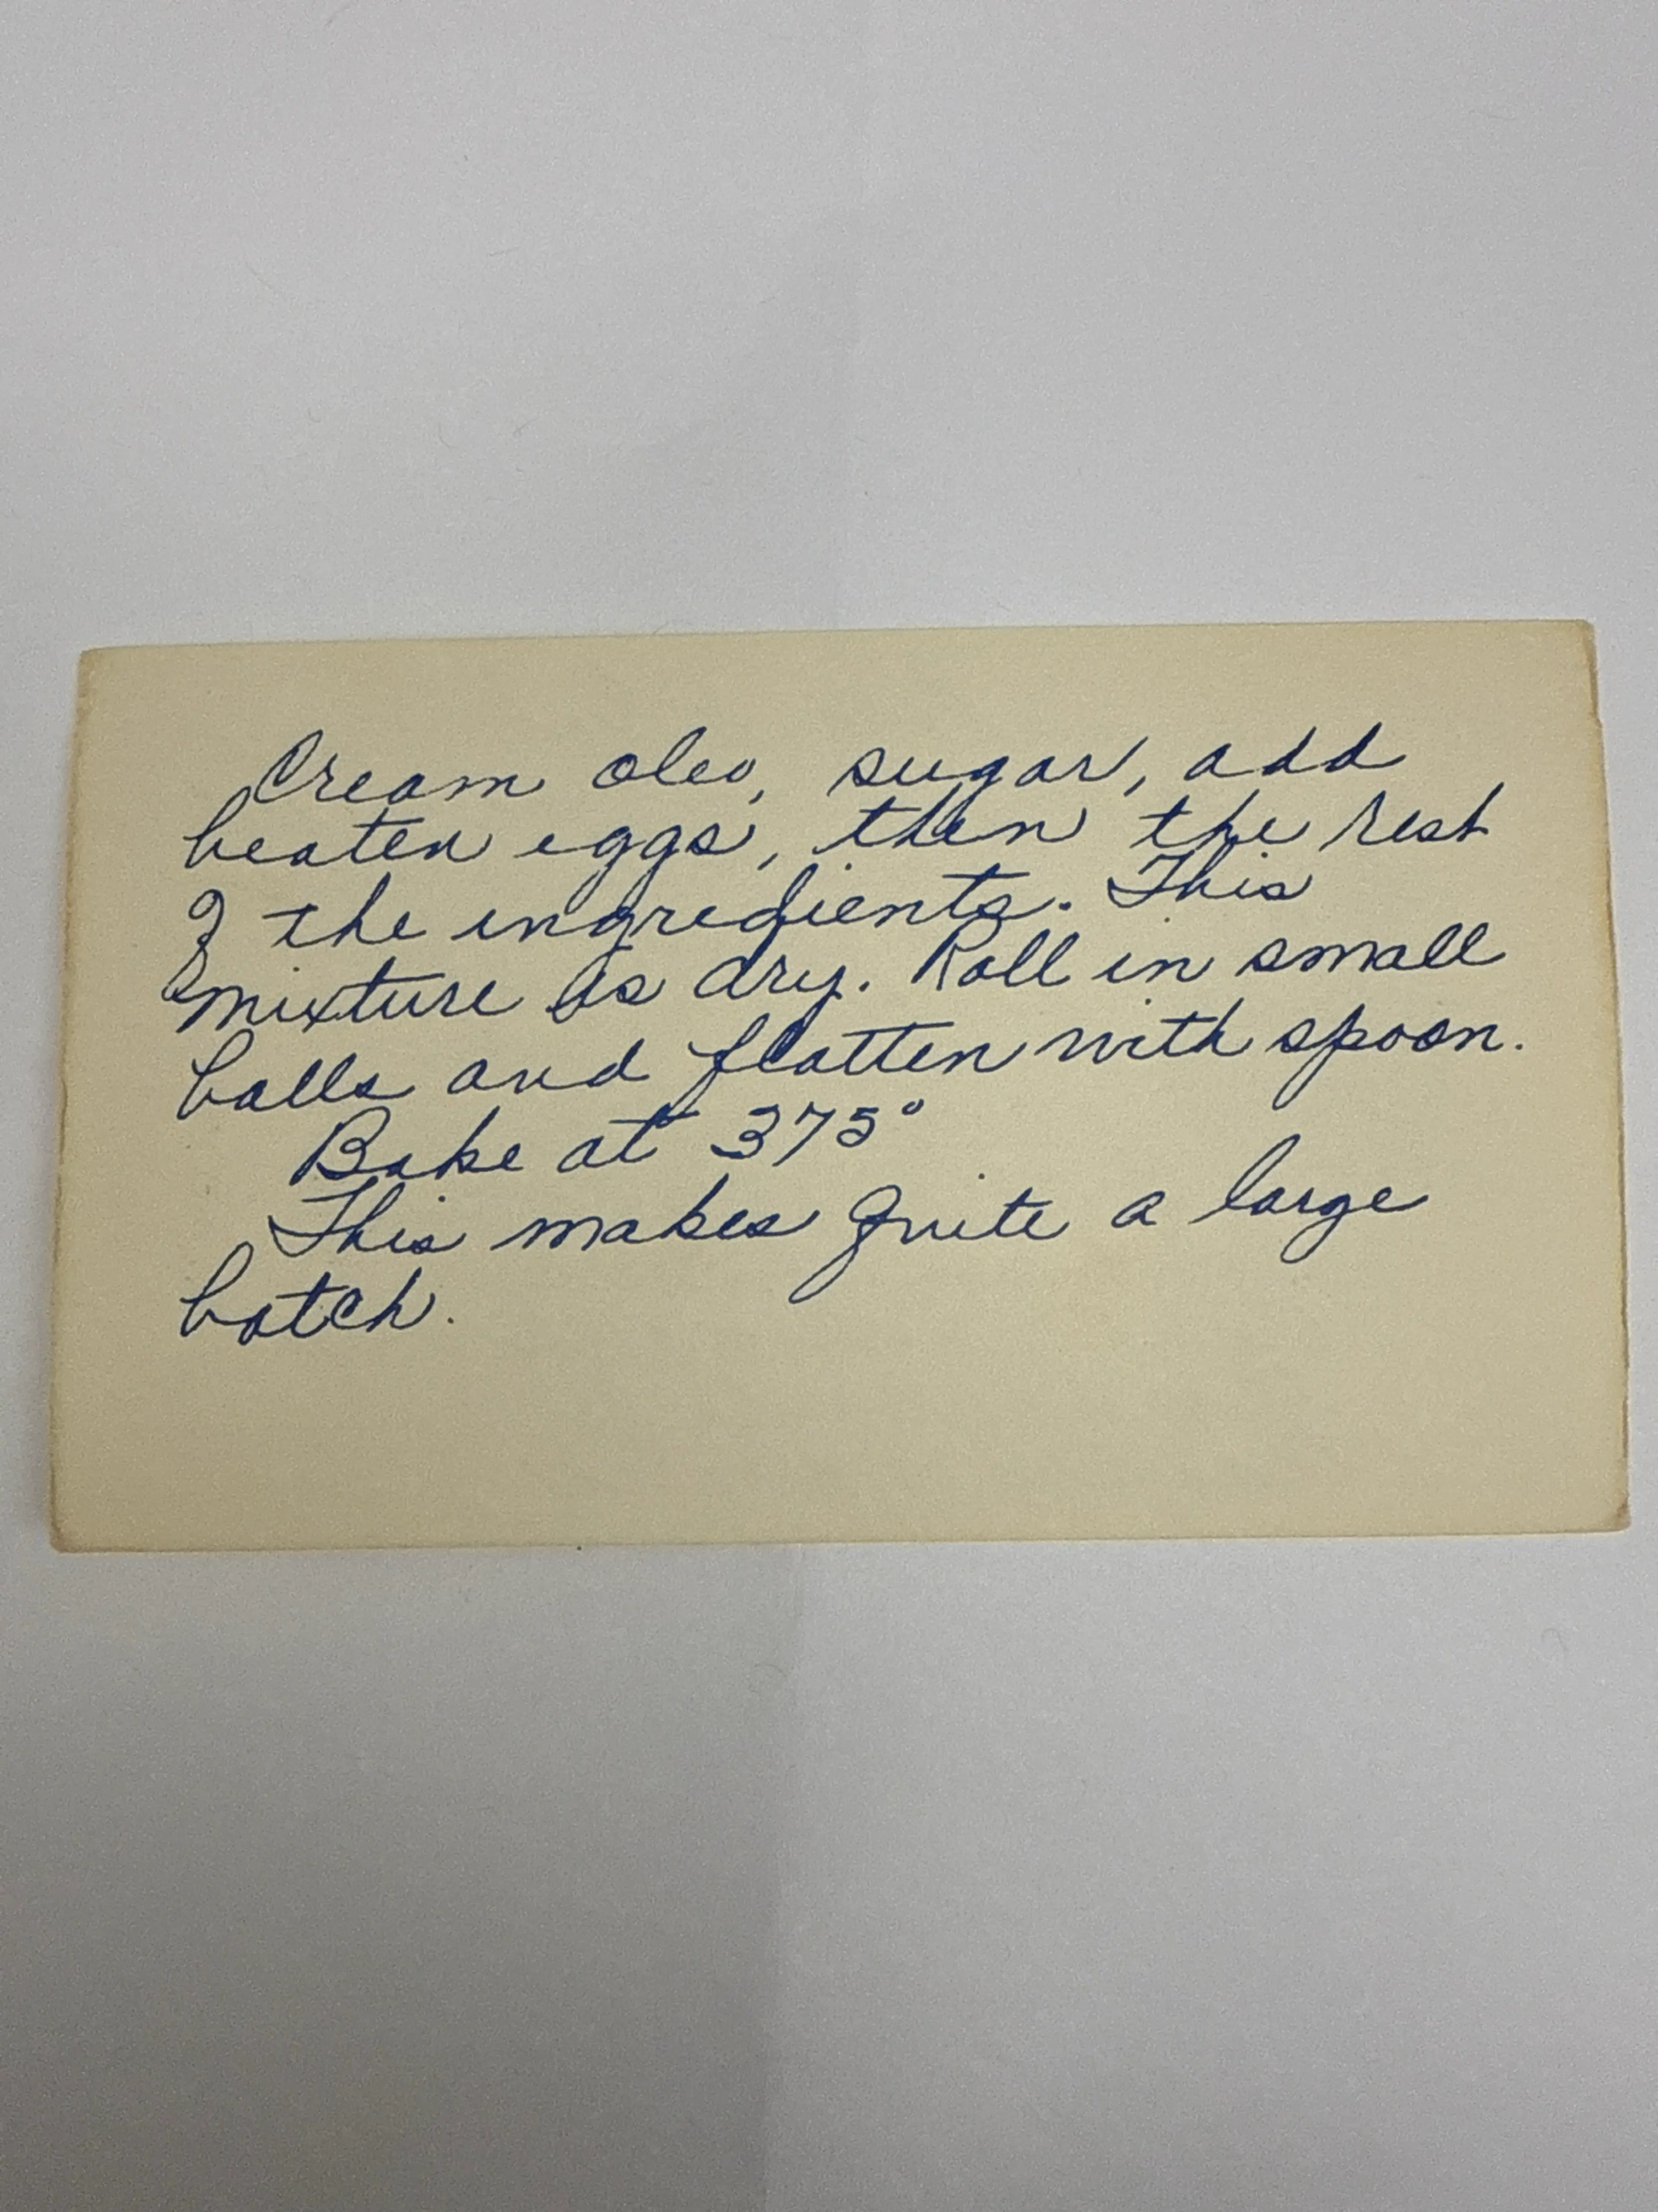 Cream oleo, sugar, add
beaten eggs, then the rest
of the ingredients. This
mixture is dry. Roll in small
balls and flatten with spoon.
Bake at 375°
This makes quite a large
batch.